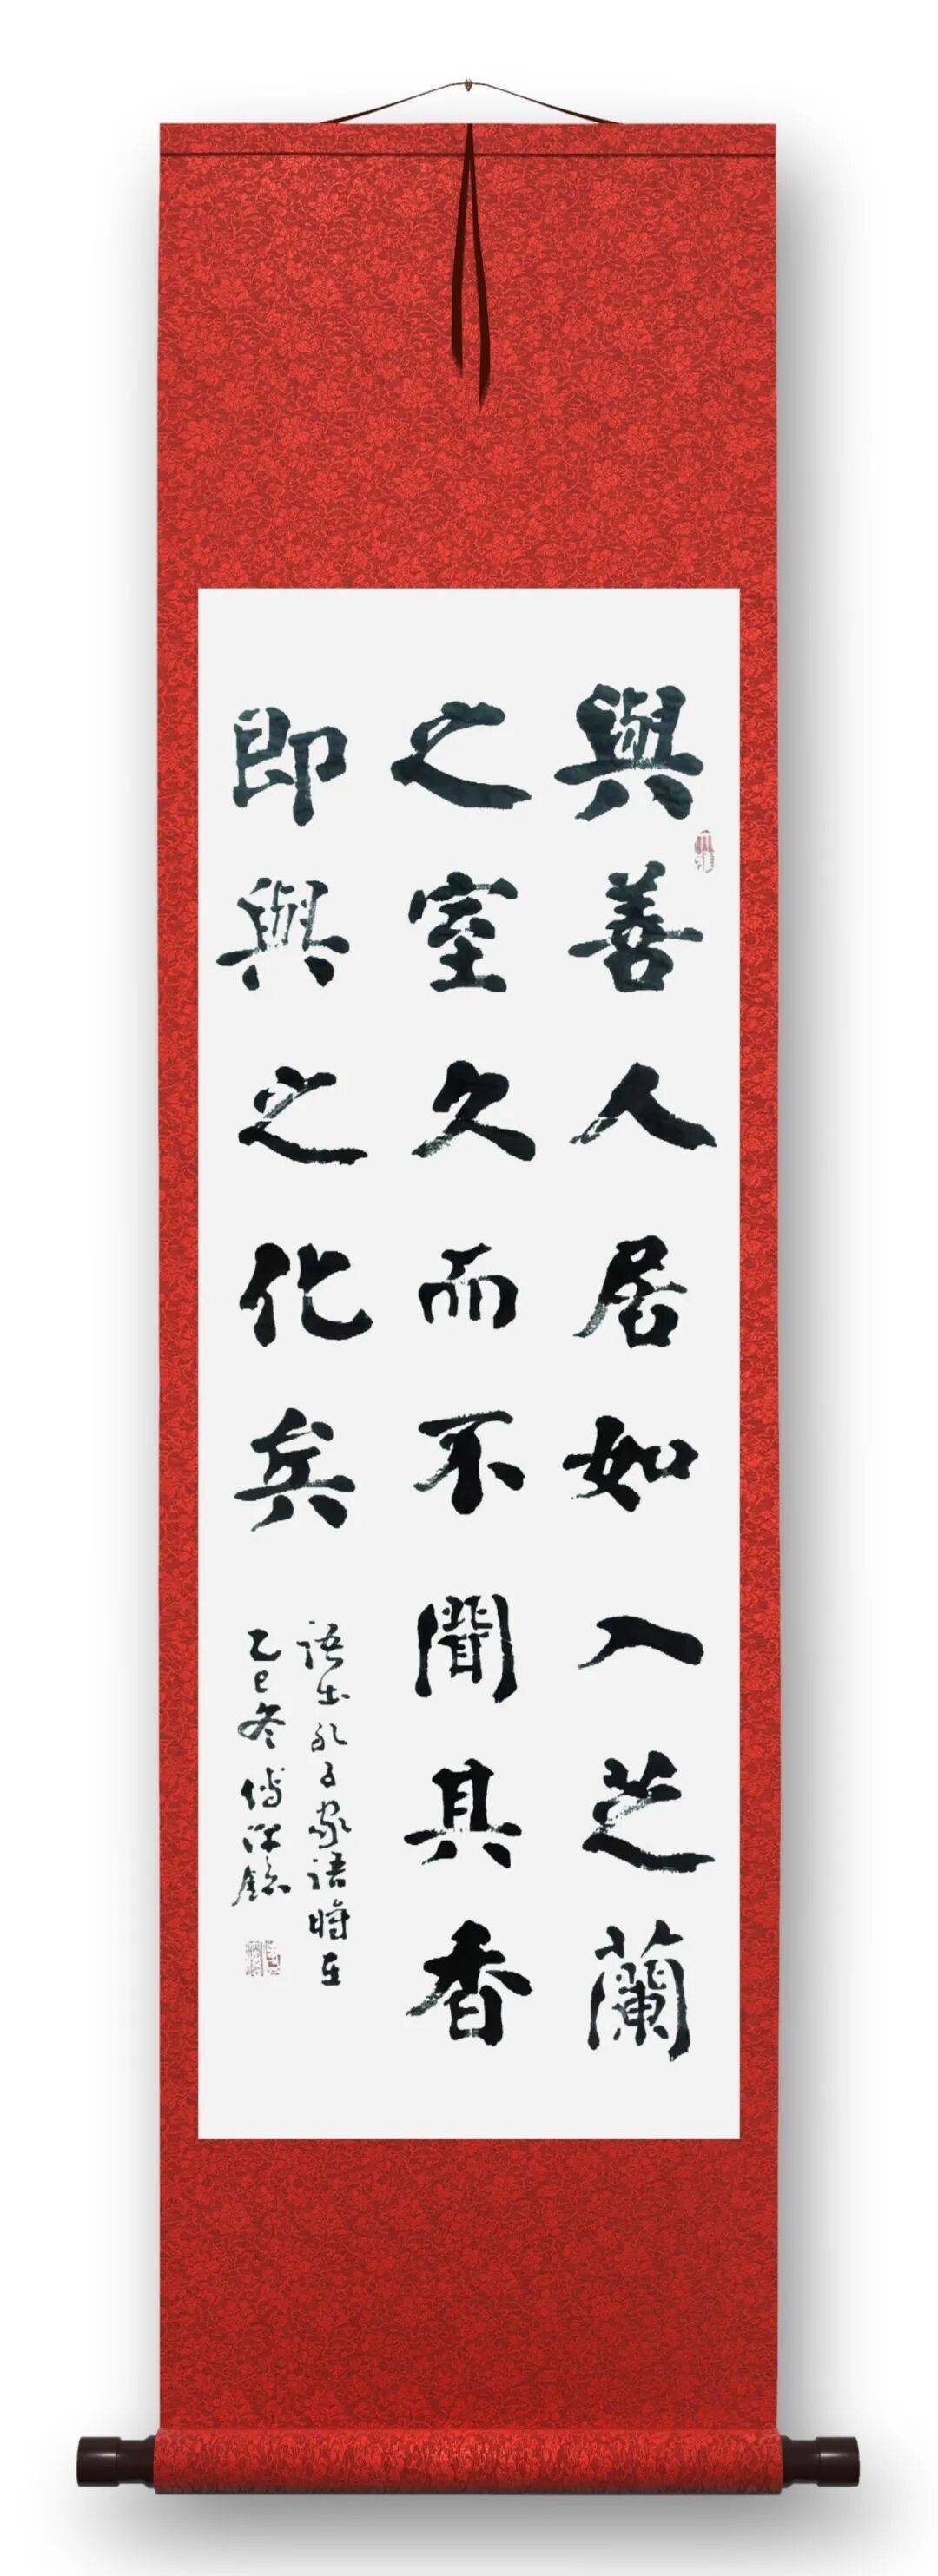 與善人居如入芝蘭
之室久而不聞其香
即與之化矣
語出孔子家語時在
乙巳冬